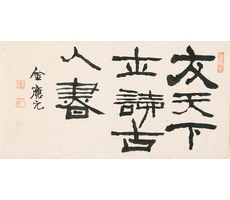 友天下
士讀古
人書
金應元